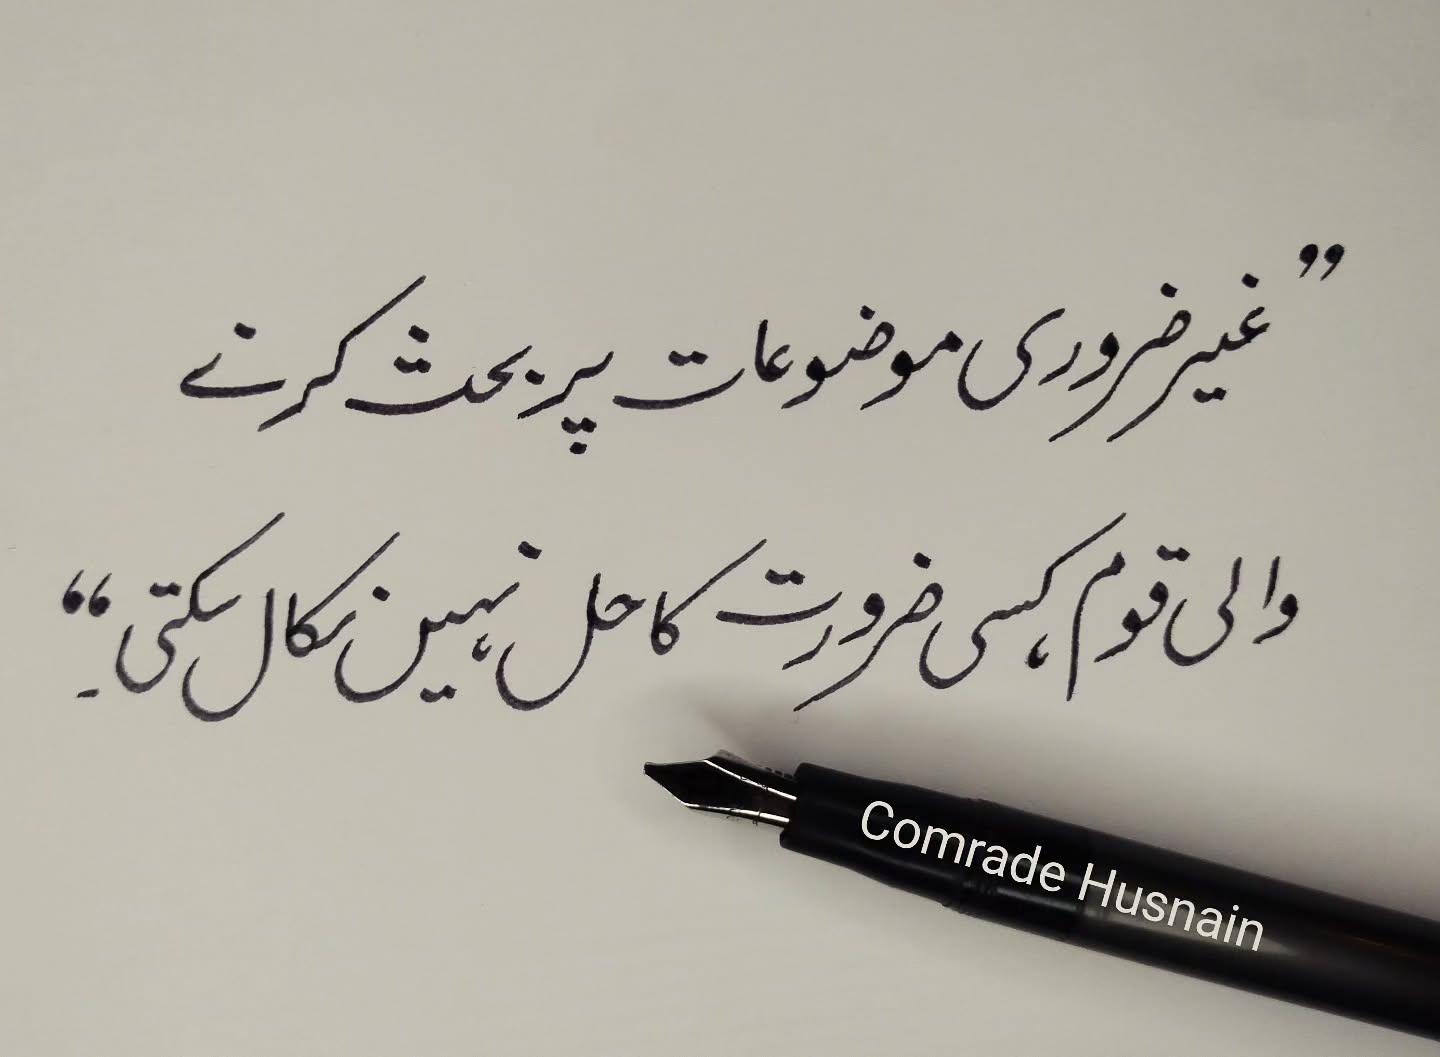 ”غیر ضروری موضوعات پر بحث کرنے
والی قوم، کسی ضرورت کا حل نہیں نکال سکتی۔“
Comrade Husnain